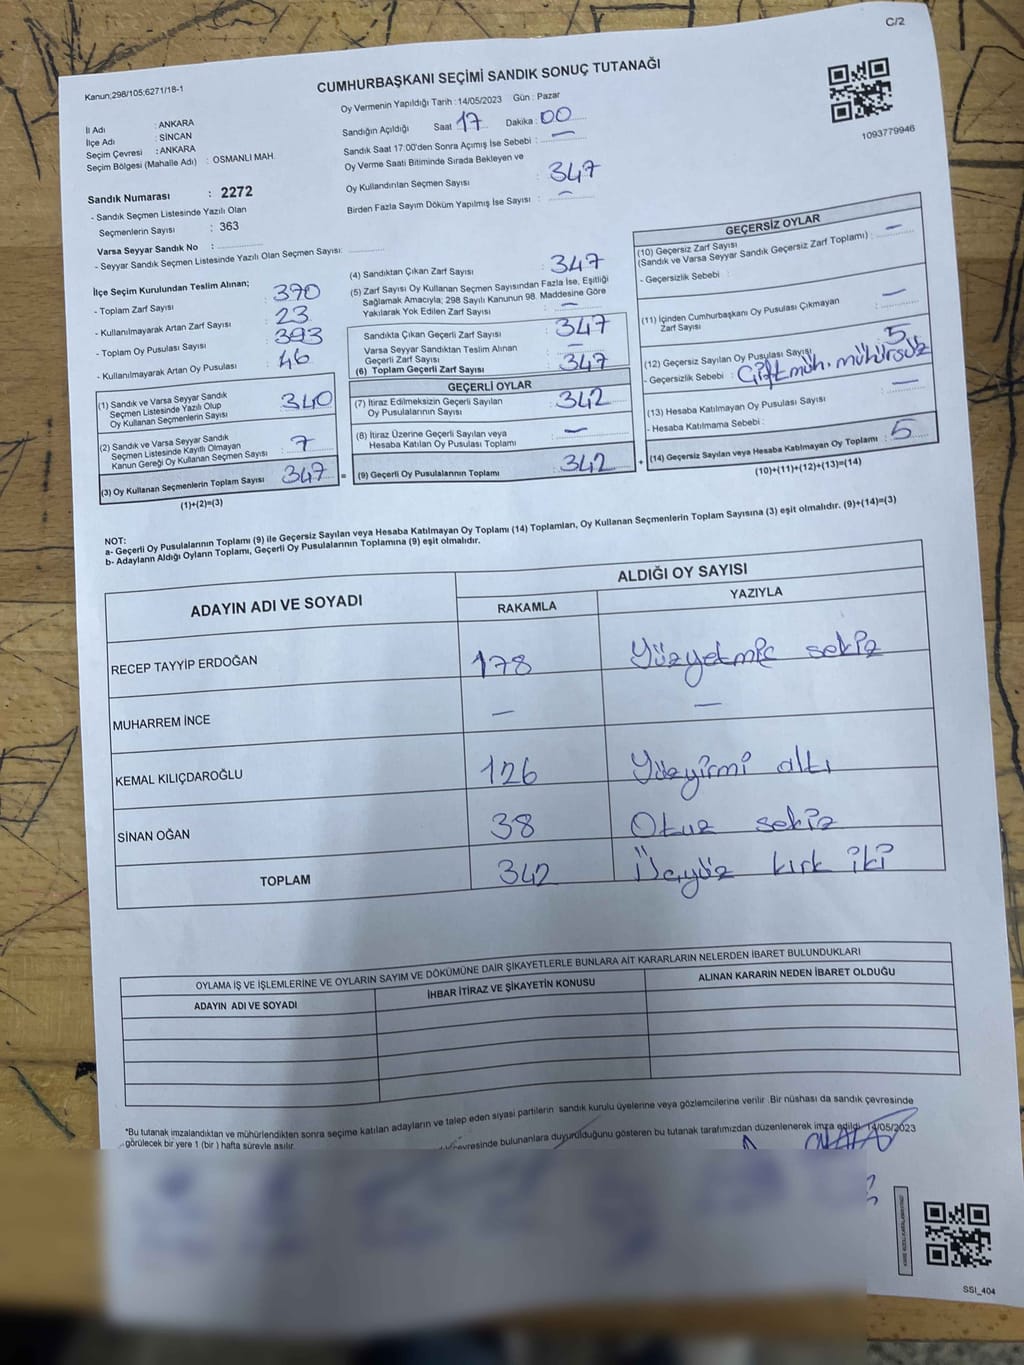 C/2
Kanun;298/105;6271/18-1
CUMHURBAŞKANI SEÇİMİ SANDIK SONUÇ TUTANAĞI
Oy Vermenin Yapıldığı Tarih : 14/05/2023 Gün : Pazar
İl Adı : ANKARA
İlçe Adı : SİNCAN
Seçim Çevresi : ANKARA
Seçim Bölgesi (Mahalle Adı) : OSMANLI MAH.
Sandığın Açıldığı Saat : 17 Dakika : 00
Sandık Saat 17:00'den Sonra Açımış İse Sebebi : —
Oy Verme Saati Bitiminde Sırada Bekleyen ve
Oy Kullandırılan Seçmen Sayısı : 347
Birden Fazla Sayım Döküm Yapılmış İse Sayısı : —
1093779946
Sandık Numarası : 2272
- Sandık Seçmen Listesinde Yazılı Olan
Seçmenlerin Sayısı : 363
Varsa Seyyar Sandık No :
- Seyyar Sandık Seçmen Listesinde Yazılı Olan Seçmen Sayısı:
İlçe Seçim Kurulundan Teslim Alınan;
- Toplam Zarf Sayısı : 370
- Kullanılmayarak Artan Zarf Sayısı : 23
- Toplam Oy Pusulası Sayısı : 393
- Kullanılmayarak Artan Oy Pusulası : 46
(1) Sandık ve Varsa Seyyar Sandık
Seçmen Listesinde Yazılı Olup
Oy Kullanan Seçmenlerin Sayısı : 340
(2) Sandık ve Varsa Seyyar Sandık
Seçmen Listesinde Kayıtlı Olmayan
Kanun Gereği Oy Kullanan Seçmen Sayısı : 7
(3) Oy Kullanan Seçmenlerin Toplam Sayısı 347 =
(1)+(2)=(3)
(4) Sandıktan Çıkan Zarf Sayısı : 347
(5) Zarf Sayısı Oy Kullanan Seçmen Sayısından Fazla İse, Eşitliği
Sağlamak Amacıyla; 298 Sayılı Kanunun 98. Maddesine Göre
Yakılarak Yok Edilen Zarf Sayısı : —
Sandıkta Çıkan Geçerli Zarf Sayısı : 347
Varsa Seyyar Sandıktan Teslim Alınan
Geçerli Zarf Sayısı : —
(6) Toplam Geçerli Zarf Sayısı : 347
GEÇERLİ OYLAR
(7) İtiraz Edilmeksizin Geçerli Sayılan
Oy Pusulalarının Sayısı : 342
(8) İtiraz Üzerine Geçerli Sayılan veya
Hesaba Katılan Oy Pusulası Toplamı : —
(9) Geçerli Oy Pusulalarının Toplamı : 342 +
GEÇERSİZ OYLAR
(10) Geçersiz Zarf Sayısı
(Sandık ve Varsa Seyyar Sandık Geçersiz Zarf Toplamı) : —
- Geçersizlik Sebebi :
(11) İçinden Cumhurbaşkanı Oy Pusulası Çıkmayan
Zarf Sayısı : —
(12) Geçersiz Sayılan Oy Pusulası Sayısı : 5
- Geçersizlik Sebebi : Çift müh. mühürsüz
(13) Hesaba Katılmayan Oy Pusulası Sayısı : —
- Hesaba Katılmama Sebebi :
(14) Geçersiz Sayılan veya Hesaba Katılmayan Oy Toplamı : 5
(10)+(11)+(12)+(13)=(14)
NOT:
a- Geçerli Oy Pusulalarının Toplamı (9) ile Geçersiz Sayılan veya Hesaba Katılmayan Oy Toplamı (14) Toplamları, Oy Kullanan Seçmenlerin Toplam Sayısına (3) eşit olmalıdır. (9)+(14)=(3)
b- Adayların Aldığı Oyların Toplamı, Geçerli Oy Pusulalarının Toplamına (9) eşit olmalıdır.
ADAYIN ADI VE SOYADI
ALDIĞI OY SAYISI
RAKAMLA YAZIYLA
RECEP TAYYİP ERDOĞAN 178 Yüzyetmiş sekiz
MUHARREM İNCE — —
KEMAL KILIÇDAROĞLU 126 Yüzyirmi altı
SİNAN OĞAN 38 Otuz sekiz
TOPLAM 342 Üçyüz kırk iki
OYLAMA İŞ VE İŞLEMLERİNE VE OYLARIN SAYIM VE DÖKÜMÜNE DAİR ŞİKAYETLERLE BUNLARA AİT KARARLARIN NELERDEN İBARET BULUNDUKLARI
ADAYIN ADI VE SOYADI İHBAR İTİRAZ VE ŞİKAYETİN KONUSU ALINAN KARARIN NEDEN İBARET OLDUĞU
*Bu tutanak imzalandıktan ve mühürlendikten sonra seçime katılan adayların ve talep eden siyasi partilerin sandık kurulu üyelerine veya gözlemcilerine verilir. Bir nüshası da sandık çevresinde
görülecek bir yere 1 (bir) hafta süreyle asılır.
çevresinde bulunanlara duyurulduğunu gösteren bu tutanak tarafımızdan düzenlenerek imza edildi. 14/05/2023
SSI_404